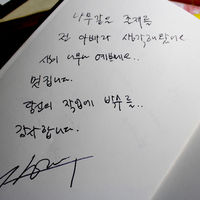 나무같은 존재를
전 아빠라 생각해왔어요
나무가 예쁘네요..
멋집니다.
형님의 작업에 박수를..
감사합니다.